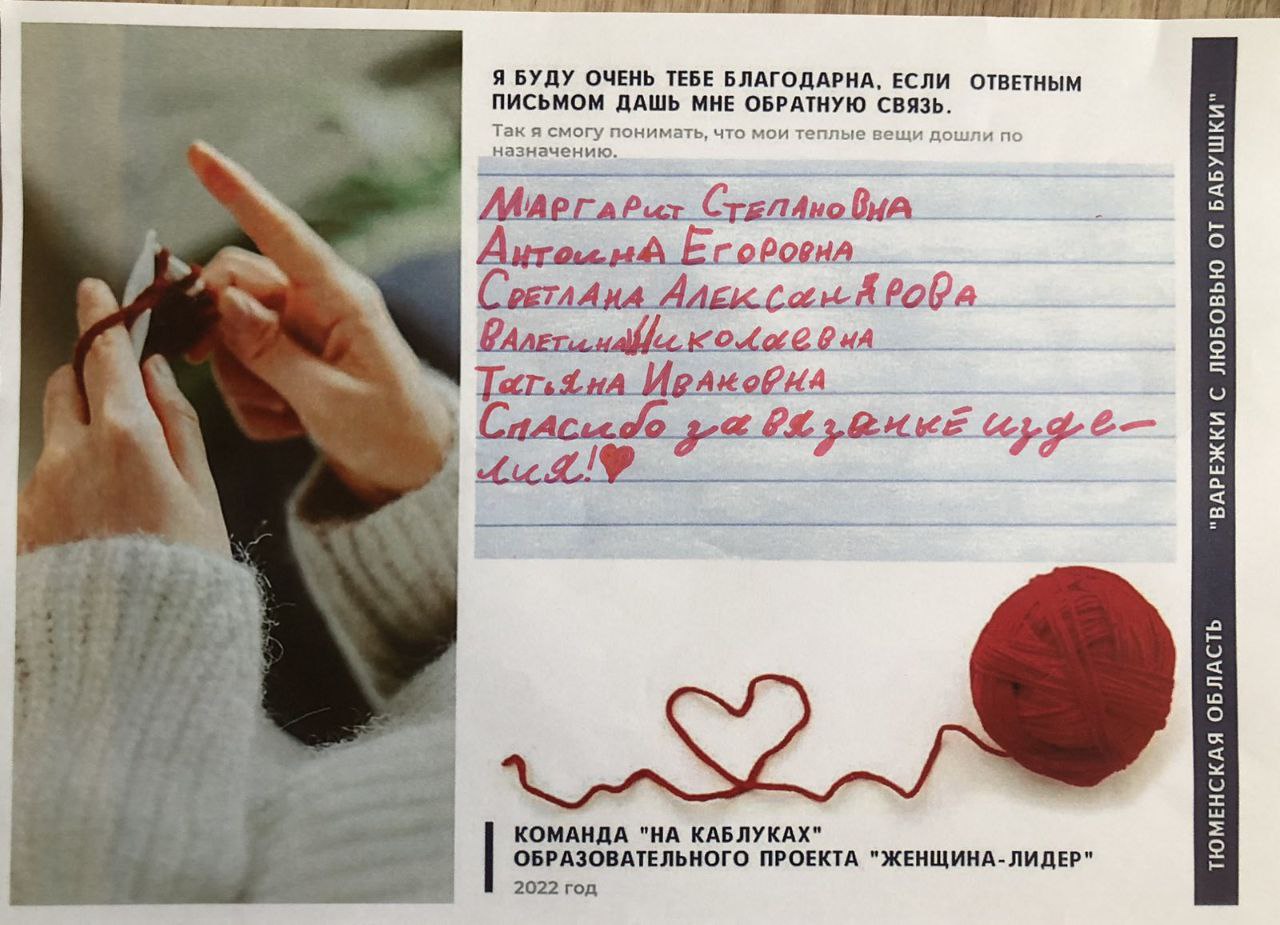 Я БУДУ ОЧЕНЬ ТЕБЕ БЛАГОДАРНА, ЕСЛИ ОТВЕТНЫМ
ПИСЬМОМ ДАШЬ МНЕ ОБРАТНУЮ СВЯЗЬ.
Так я смогу понимать, что мои теплые вещи дошли по
назначению.
Маргарит Степановна
Антоина Егоровна
Светлана Александрова
Валетина Николаевна
Татьяна Ивановна
Спасибо за вязаные изде-
лия!♥
КОМАНДА "НА КАБЛУКАХ"
ОБРАЗОВАТЕЛЬНОГО ПРОЕКТА "ЖЕНЩИНА-ЛИДЕР"
2022 год
ТЮМЕНСКАЯ ОБЛАСТЬ "ВАРЕЖКИ С ЛЮБОВЬЮ ОТ БАБУШКИ"